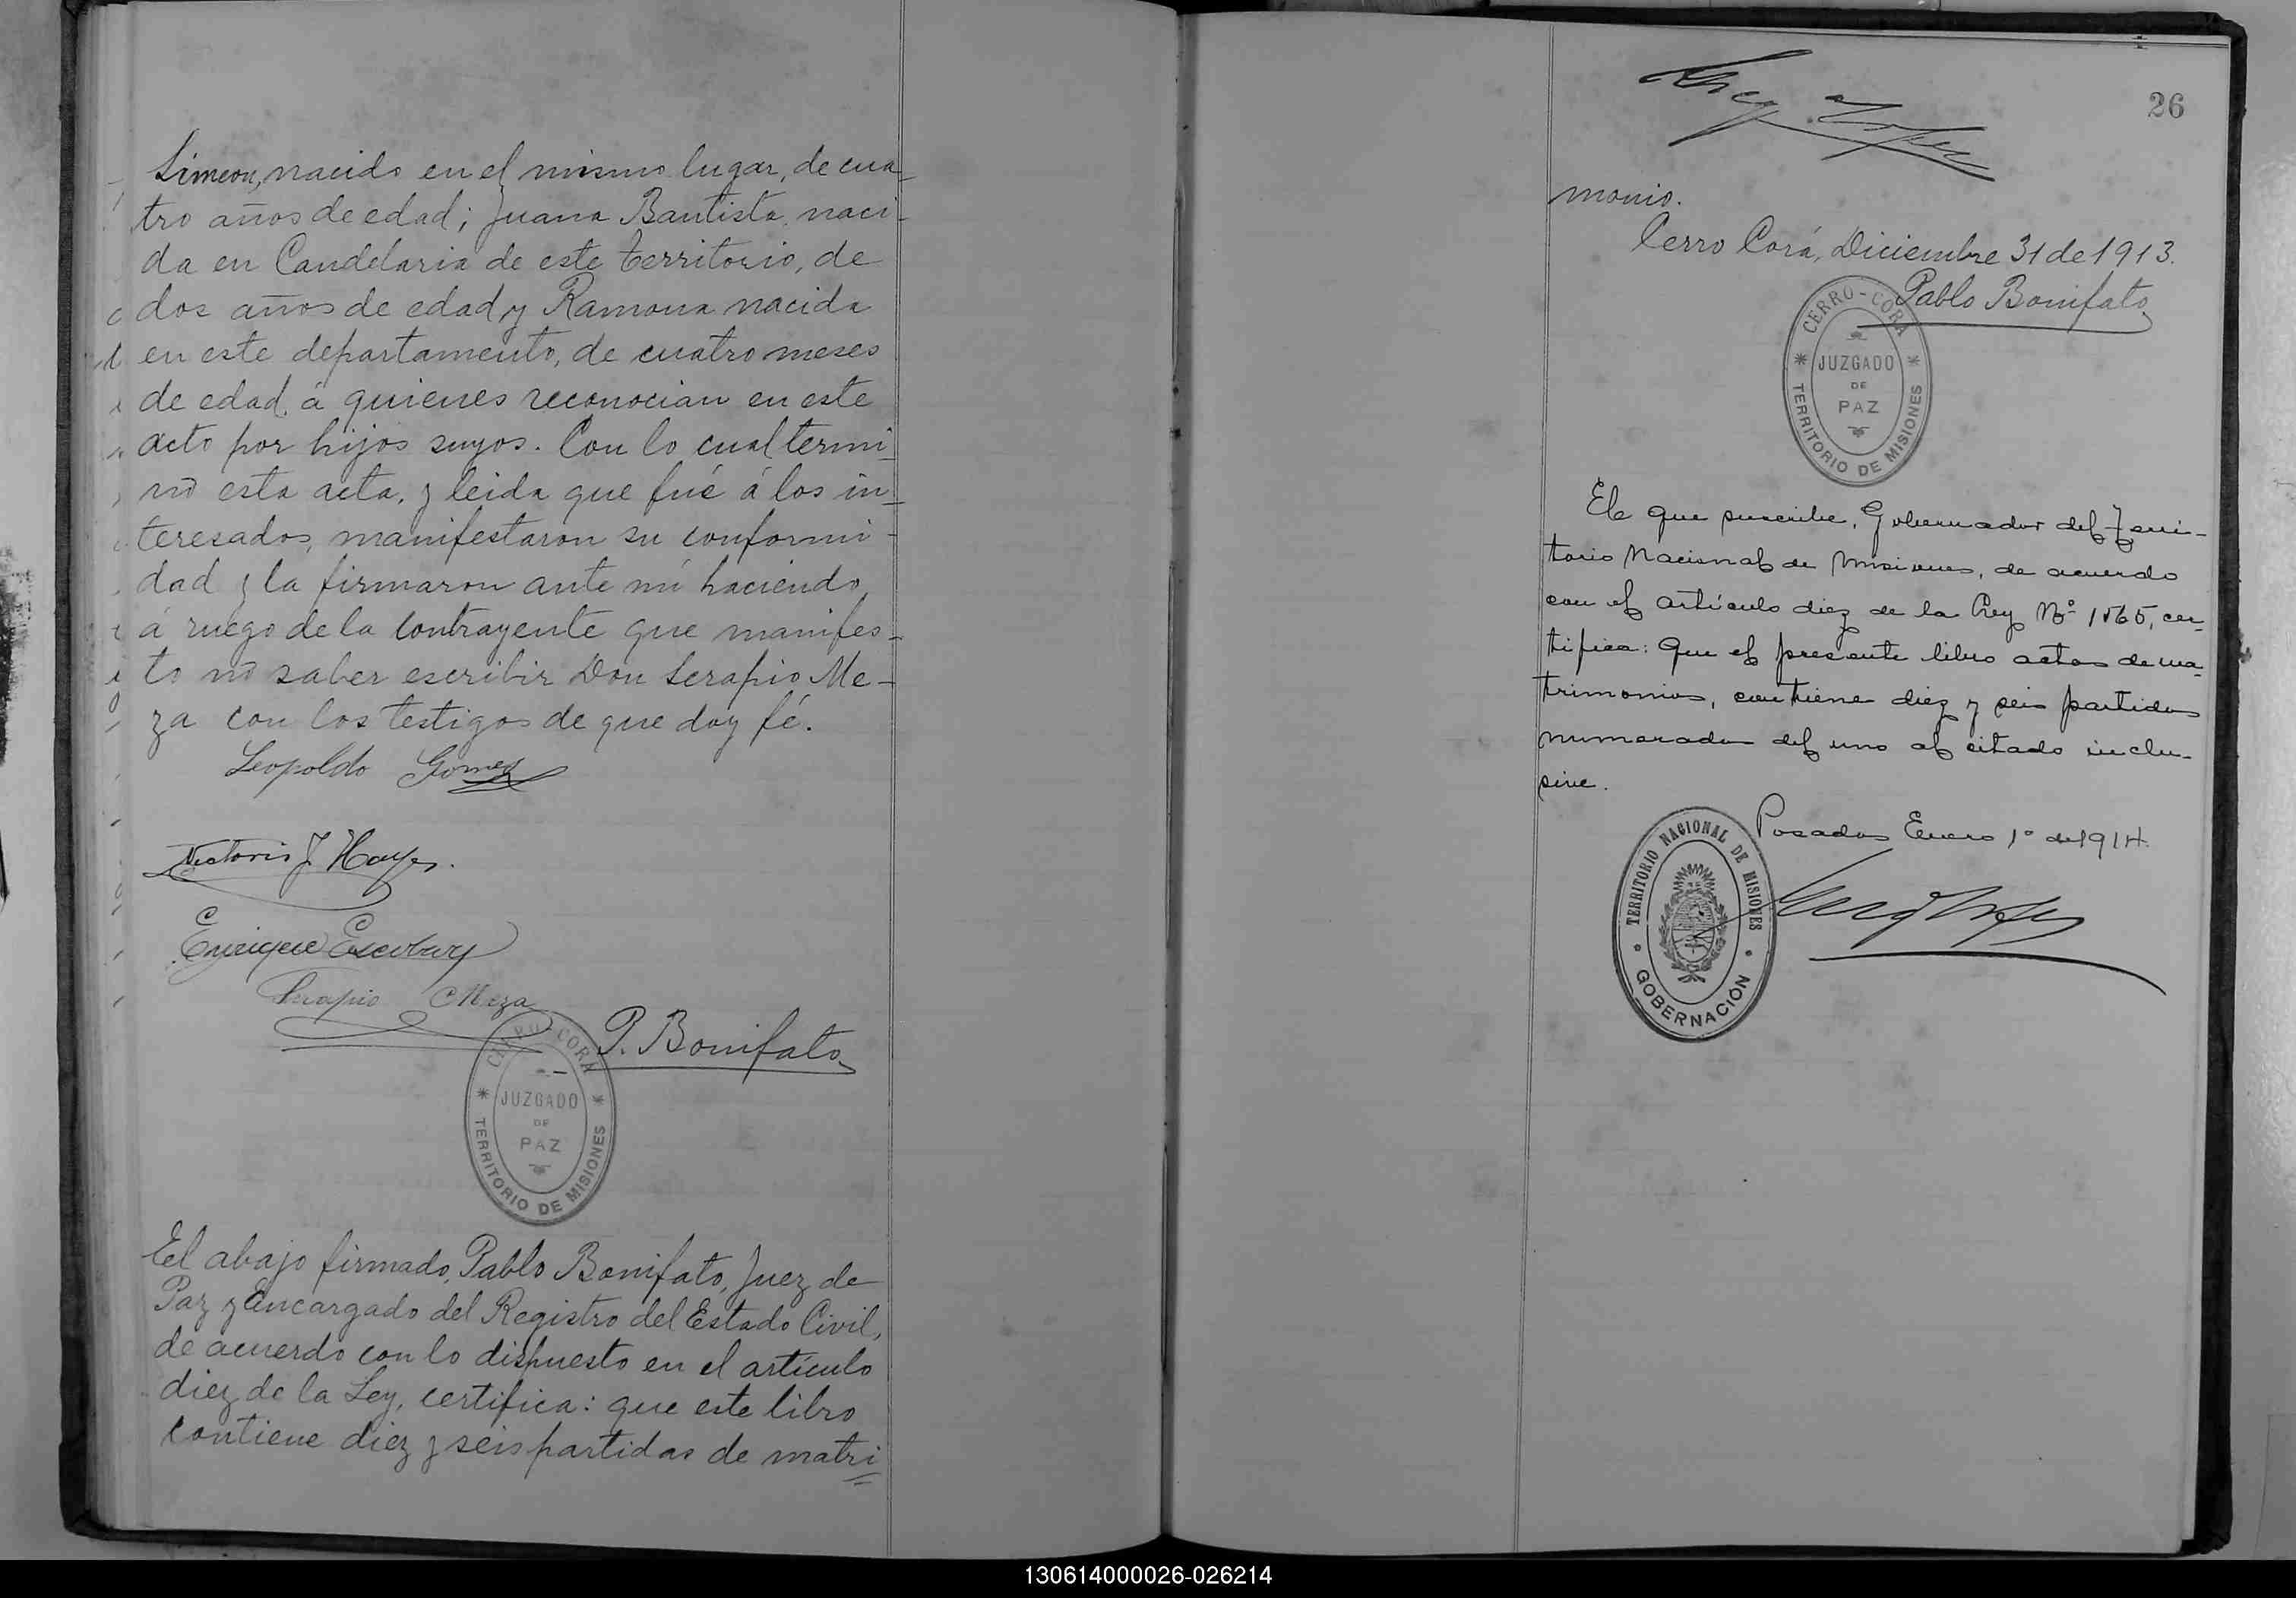 Simeon, nacido en el mismo lugar, de cua-
tro años de edad; Juana Bautista, naci-
da en Candelaria de este territorio, de
dos años de edad, y Ramona nacida
en este departamento, de cuatro meses
de edad, á quienes reconocian en este
acto por hijos suyos. Con lo cual termi-
nó esta acta, y leida que fué á los in-
teresados, manifestaron su conformi-
dad y la firmaron ante mi haciendo
á ruego de la contrayente que manifes-
to no saber escribir Don Serapio Me-
za con los testigos de que doy fé.
Leopoldo Gomez
J. Hayes.
Enrique Escobar
Serapio Meza
P. Bonifato
CERRO-CORA
JUZGADO
DE
PAZ
TERRITORIO DE MISIONES
El abajo firmado, Pablo Bonifato, Juez de
Paz y Encargado del Registro del Estado Civil,
de acuerdo con lo dispuesto en el artículo
diez de la Ley, certifica: que este libro
contiene diez y seis partidas de matri
26
monio.
Cerro Corá, Diciembre 31 de 1913.
Pablo Bonifato
CERRO-CORA
JUZGADO
DE
PAZ
TERRITORIO DE MISIONES
El que suscribe, Gobernador del Terri-
torio Nacional de Misiones, de acuerdo
con el artículo diez de la Ley Nº 1565, cer-
tifica: Que el presente libro actas de ma-
trimonios, contiene diez y seis partidas
numeradas del uno al citado inclu-
sive.
Posadas Enero 1º de 1914.
TERRITORIO NACIONAL DE MISIONES
GOBERNACIÓN
130614000026-026214